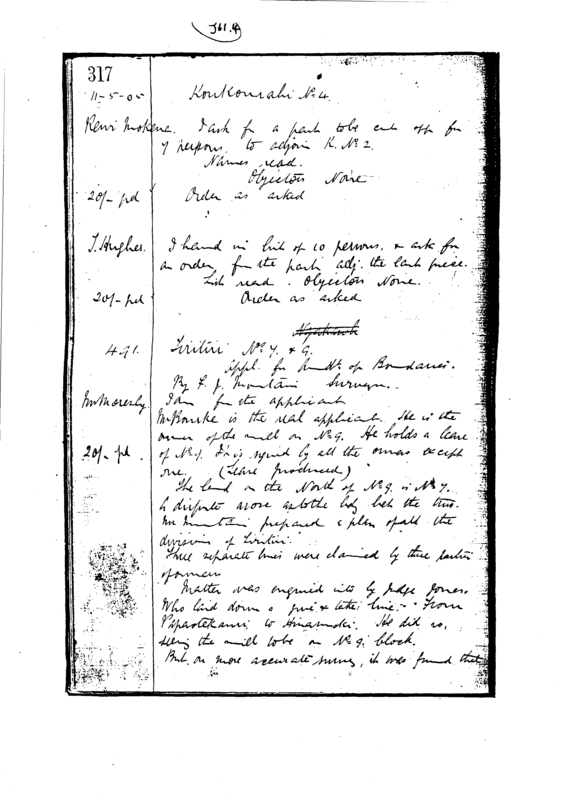 J61.
317
11-5-05
Koukourahi No 4
Renvi Mokena. I ask for a part to be cut off for
7 persons, to adjoin K. No 2
Names read.
Objectors None
20/- pd Order as asked
J. Hughes. I hand in list of 10 persons, & ask for
an order for the part adj. the last piece.
List read. Objectors None.
20/- pd Order as asked
491. Tiritiri No 7. & 9.
Appl. for Amdt. of Boundaries.
By F. J. Mountain Surveyor.
Mr Moresby. I am for the applicant
Mr Rourke is the real applicant. He is the
owner of the mill on No 9. He holds a lease
20/- pd. of No 9. It is signed by all the owners except
one. (Lease produced)
The land on the North of No 9 is No 7.
A dispute arose as to the bdy betn the two.
Mr Mountain prepared a plan of all the
division of Tiritiri.
Three separate lines were claimed by three parties
of owners
Matter was enquired into by Judge Jones.
Who laid down a line From
to He did so,
seeing the mill to be on No 9 block.
But, on more accurate survey, it was found that